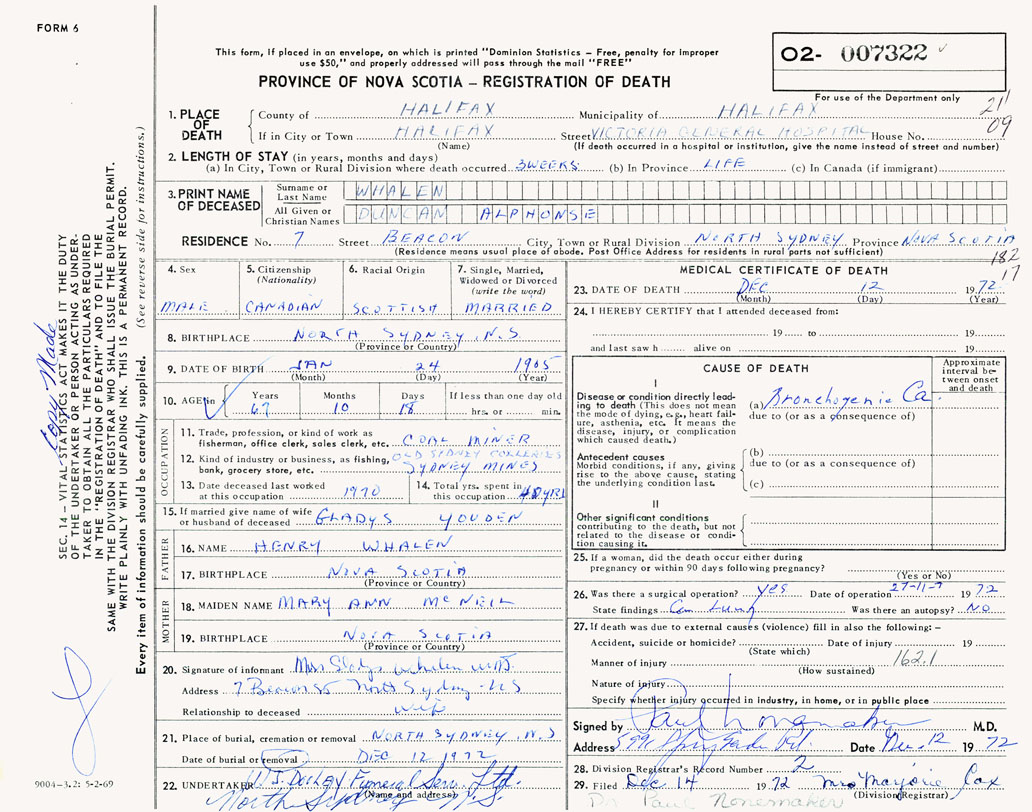 FORM 6
This form, If placed in an envelope, on which is printed "Dominion Statistics – Free, penalty for improper
use $50," and properly addressed will pass through the mail "FREE"
PROVINCE OF NOVA SCOTIA – REGISTRATION OF DEATH
02- 007322
For use of the Department only
211
09
1. PLACE OF DEATH
County of HALIFAX Municipality of HALIFAX
If in City or Town HALIFAX Street VICTORIA GENERAL HOSPITAL House No.
(Name) (If death occurred in a hospital or institution, give the name instead of street and number)
2. LENGTH OF STAY (in years, months and days)
(a) In City, Town or Rural Division where death occurred 3 WEEKS (b) In Province LIFE (c) In Canada (if immigrant)
3. PRINT NAME OF DECEASED
Surname or Last Name WHALEN
All Given or Christian Names DUNCAN ALPHONSE
RESIDENCE No. 7 Street BEACON City, Town or Rural Division NORTH SYDNEY Province NOVA SCOTIA
(Residence means usual place of abode. Post Office Address for residents in rural parts not sufficient)
182
17
4. Sex MALE
5. Citizenship (Nationality) CANADIAN
6. Racial Origin SCOTTISH
7. Single, Married, Widowed or Divorced (write the word) MARRIED
8. BIRTHPLACE NORTH SYDNEY, N.S.
(Province or Country)
9. DATE OF BIRTH JAN 24 1905
(Month) (Day) (Year)
10. AGE in Years Months Days If less than one day old
67 10 18 hrs. or min.
OCCUPATION
11. Trade, profession, or kind of work as
fishermen, office clerk, sales clerk, etc. COAL MINER
12. Kind of industry or business, as fishing, OLD SYDNEY COLLERIES
bank, grocery store, etc. SYDNEY MINES
13. Date deceased last worked
at this occupation 1970
14. Total yrs. spent in
this occupation 48 YRS
15. If married give name of wife
or husband of deceased GLADYS YOUDEN
FATHER
16. NAME HENRY WHALEN
17. BIRTHPLACE NOVA SCOTIA
(Province or Country)
MOTHER
18. MAIDEN NAME MARY ANN McNEIL
19. BIRTHPLACE NOVA SCOTIA
(Province or Country)
20. Signature of informant Mrs Gladys Whalen
Address 7 Beacon St North Sydney NS
Relationship to deceased wife
21. Place of burial, cremation or removal NORTH SYDNEY, N.S
Date of burial or removal DEC 12 1972
22. UNDERTAKER W.J. Dooley Funeral Serv. Ltd
(Name and address)
North Sydney N.S.
MEDICAL CERTIFICATE OF DEATH
23. DATE OF DEATH DEC 12 1972
(Month) (Day) (Year)
24. I HEREBY CERTIFY that I attended deceased from:
19 to 19
and last saw h alive on 19
CAUSE OF DEATH
Approximate interval between onset and death
I
Disease or condition directly leading to death (This does not
mean the mode of dying, e.g., heart failure, asthenia, etc. It means the
disease, injury, or complication
which caused death.)
(a) Bronchogenic Ca
due to (or as a consequence of)
Antecedent causes
Morbid conditions, if any, giving
rise to the above cause, stating
the underlying condition last.
(b)
due to (or as a consequence of)
(c)
II
Other significant conditions
contributing to the death, but not
related to the disease or condition causing it.
25. If a woman, did the death occur either during
pregnancy or within 90 days following pregnancy?
(Yes or No)
26. Was there a surgical operation? yes Date of operation 27-11-7 1972
State findings Ca Lung Was there an autopsy? NO
27. If death was due to external causes (violence) fill in also the following: –
Accident, suicide or homicide? Date of injury 19
(State which)
Manner of injury 162.1
(How sustained)
Nature of injury
Specify whether injury occurred in industry, in home, or in public place
Signed by Paul Nonamaker M.D.
Address 5991 Spring Garden Rd. Date Dec. 12 1972
28. Division Registrar's Record Number 2
29. Filed Dec 14 1972 Mrs Marjorie Cox
(Division Registrar)
Dr. Paul Nonemaker
SEC. 14 – VITAL STATISTICS ACT MAKES IT THE DUTY
OF THE UNDERTAKER OR PERSON ACTING AS UNDER-
TAKER TO OBTAIN ALL THE PARTICULARS REQUIRED
IN THE "REGISTRATION OF DEATH" AND TO FILE THE
SAME WITH THE DIVISION REGISTRAR WHO SHALL ISSUE THE BURIAL PERMIT.
WRITE PLAINLY WITH UNFADING INK. THIS IS A PERMANENT RECORD.
Every item of information should be carefully supplied. (See reverse side for instructions.)
Copy Made
9004-3.2: 5-2-69